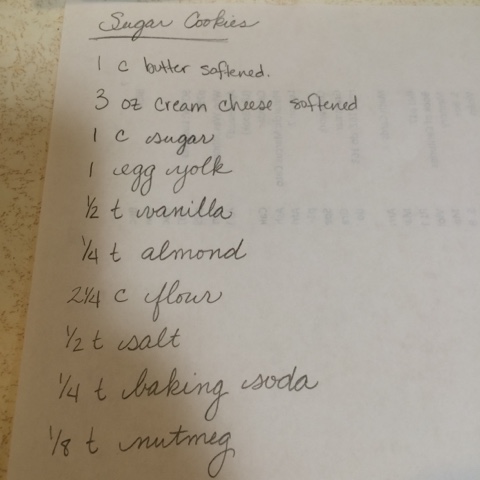 Sugar Cookies
1 c butter softened.
3 oz cream cheese softened
1 c sugar
1 egg yolk
1/2 t vanilla
1/4 t almond
2 1/4 c flour
1/2 t salt
1/4 t baking soda
1/8 t nutmeg